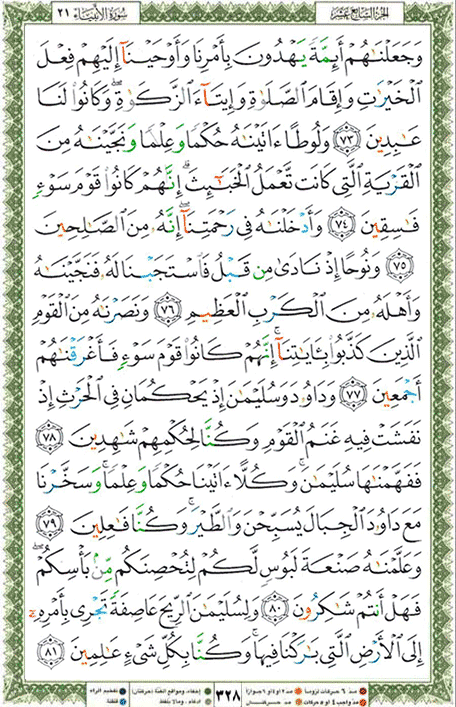 الجزء السابع عشر
سورة الأنبياء ٢١
وَجَعَلْنَٰهُمْ أَئِمَّةً يَهْدُونَ بِأَمْرِنَا وَأَوْحَيْنَآ إِلَيْهِمْ فِعْلَ
ٱلْخَيْرَٰتِ وَإِقَامَ ٱلصَّلَوٰةِ وَإِيتَآءَ ٱلزَّكَوٰةِ ۖ وَكَانُوا۟ لَنَا
عَٰبِدِينَ ﴿٧٣﴾ وَلُوطًا ءَاتَيْنَٰهُ حُكْمًا وَعِلْمًا وَنَجَّيْنَٰهُ مِنَ
ٱلْقَرْيَةِ ٱلَّتِى كَانَت تَّعْمَلُ ٱلْخَبَٰٓئِثَ ۗ إِنَّهُمْ كَانُوا۟ قَوْمَ سَوْءٍ
فَٰسِقِينَ ﴿٧٤﴾ وَأَدْخَلْنَٰهُ فِى رَحْمَتِنَآ ۖ إِنَّهُۥ مِنَ ٱلصَّٰلِحِينَ
﴿٧٥﴾ وَنُوحًا إِذْ نَادَىٰ مِن قَبْلُ فَٱسْتَجَبْنَا لَهُۥ فَنَجَّيْنَٰهُ
وَأَهْلَهُۥ مِنَ ٱلْكَرْبِ ٱلْعَظِيمِ ﴿٧٦﴾ وَنَصَرْنَٰهُ مِنَ ٱلْقَوْمِ
ٱلَّذِينَ كَذَّبُوا۟ بِـَٔايَٰتِنَآ ۚ إِنَّهُمْ كَانُوا۟ قَوْمَ سَوْءٍ فَأَغْرَقْنَٰهُمْ
أَجْمَعِينَ ﴿٧٧﴾ وَدَاوُۥدَ وَسُلَيْمَٰنَ إِذْ يَحْكُمَانِ فِى ٱلْحَرْثِ إِذْ
نَفَشَتْ فِيهِ غَنَمُ ٱلْقَوْمِ وَكُنَّا لِحُكْمِهِمْ شَٰهِدِينَ ﴿٧٨﴾
فَفَهَّمْنَٰهَا سُلَيْمَٰنَ ۚ وَكُلًّا ءَاتَيْنَا حُكْمًا وَعِلْمًا ۚ وَسَخَّرْنَا
مَعَ دَاوُۥدَ ٱلْجِبَالَ يُسَبِّحْنَ وَٱلطَّيْرَ ۚ وَكُنَّا فَٰعِلِينَ ﴿٧٩﴾
وَعَلَّمْنَٰهُ صَنْعَةَ لَبُوسٍ لَّكُمْ لِتُحْصِنَكُم مِّنۢ بَأْسِكُمْ ۖ
فَهَلْ أَنتُمْ شَٰكِرُونَ ﴿٨٠﴾ وَلِسُلَيْمَٰنَ ٱلرِّيحَ عَاصِفَةً تَجْرِى بِأَمْرِهِۦٓ
إِلَى ٱلْأَرْضِ ٱلَّتِى بَٰرَكْنَا فِيهَا ۚ وَكُنَّا بِكُلِّ شَىْءٍ عَٰلِمِينَ ﴿٨١﴾
مد ٦ حركات لزوماً مد ٢ او ٤ او ٦ جوازاً
مد واجب ٤ او ٥ حركات مد حركتان
٣٢٨
إخفاء، ومواقع الغنّة (حركتان) تفخيم الراء
ادغام، ومالا يلفظ قلقلة